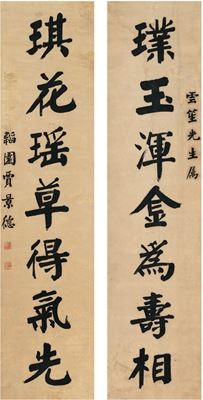 璞玉渾金為壽相
雲笙先生屬
琪花瑶草得氣先
韜園賈景德